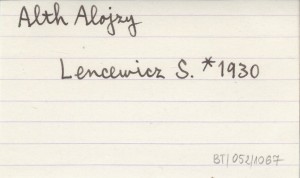 Alth Alojzy
Lencewicz S. *1930
BT/052/1087